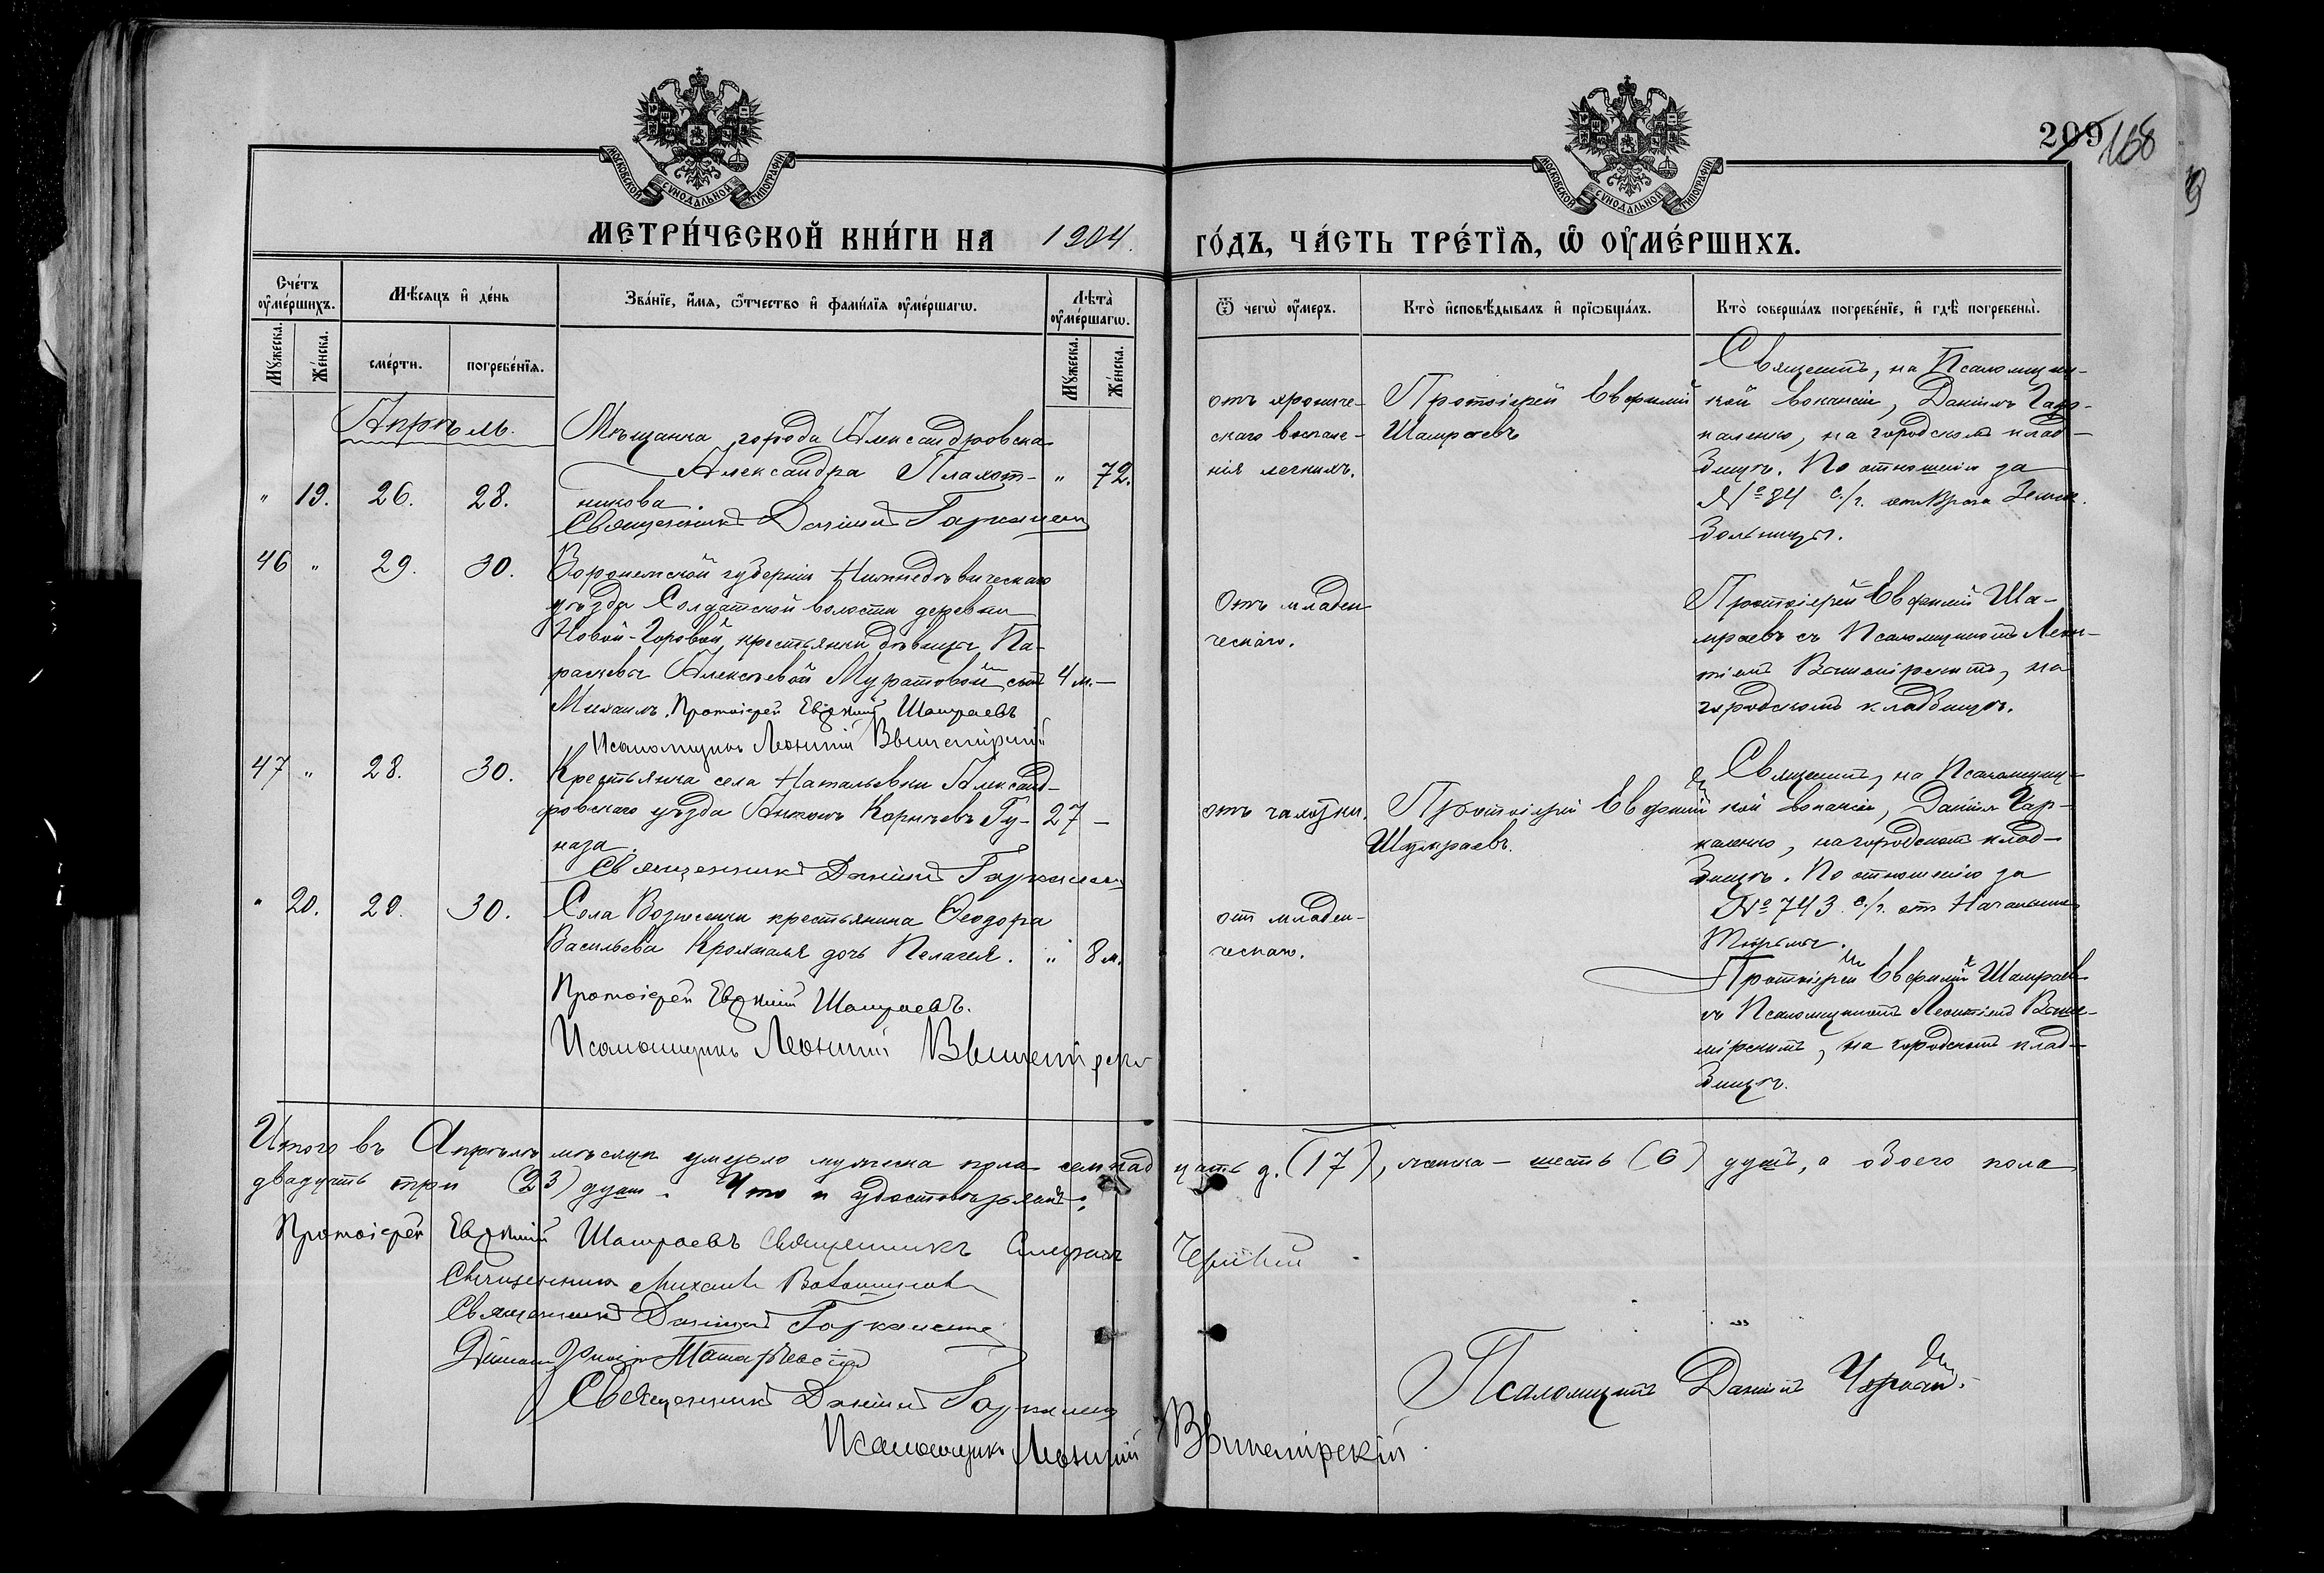 209 168
МОСКОВСКОЙ СУНОДАЛЬНОЙ ТИПОГРАФІИ
МОСКОВСКОЙ СУНОДАЛЬНОЙ ТИПОГРАФІИ
МЕТРИ́ЧЕСКОЙ КНИ́ГИ НА 1904.
ГО́ДЪ, ЧА́СТЬ ТРЕ́ТІѦ, Ѽ ОУ҆МЕ́РШИХЪ.
Сче́тъ оу҆ме́ршихъ.
Мѣ́сяцъ и҆ де́нь
Зва́нїе, и҆́мя, ѻ҆́тчество и҆ фами́лїя оу҆ме́ршагѡ.
Лѣ́та оу҆ме́ршагѡ.
Ѿ чегѡ̀ оу҆́меръ.
Кто̀ и҆сповѣ́дывалъ и҆ прїѡбща́лъ.
Кто̀ соверша́лъ погребе́нїе, и҆ гдѣ̀ погребены̀.
Мꙋ́жеска.
Же́нска.
сме́рти.
погребе́нїя.
Мꙋ́жеска.
Же́нска.
Апрѣль.
" 19. 26. 28.
Мѣщанка города Александровска
Александра Плахот- " 72.
никова.
Священникъ Даніилъ Гаркаленко
отъ хрониче-
скаго воспале-
нія легкихъ.
Протоіерей Евфимій
Шамраевъ
Священ., на Псаломщиц-
кой вакансіи, Даніилъ Гар-
каленко, на городскомъ клад-
бищѣ. По отношенію за
№ 84 с./г. отъ Врача Земск.
больницы.
46 " 29. 30.
Воронежской губерніи Нижнедѣвическаго
уѣзда Солдатской волости деревни
Новой-Горовой, крестьянки дѣвицы Па-
раскевы Алексѣевой Муратовой сынъ 4 м. –
Михаилъ. Протоіерей Евѳимій Шамраевъ
Псаломщикъ Леонтій Вышемірскій
Отъ младен
ческаго.
Протоіерей Евфимій Ша-
мраевъ съ Псаломщикомъ Леон-
тіемъ Вышемірскимъ, на
городскомъ кладбищѣ.
47 " 28. 30.
Крестьянинъ села Натальевки Александ-
ровскаго уѣзда Антонъ Корнѣевъ Гу- 27 –
наза.
Священникъ Даніилъ Гаркаленко
отъ чахотки.
Протоіерей Евфимій
Шамраевъ.
Священ., на Псаломщиц-
кой вакансіи, Даніилъ Гар-
каленко, на городскомъ клад-
бищѣ. По отношенію за
№ 743 с./г. отъ Начальника
Тюрьмы.
" 20. 29. 30.
Села Вознесенки крестьянина Ѳеодора
Васильева Крохмаля дочь Пелагея. " 8 м.
Протоіерей Евѳимій Шамраевъ.
Псаломщикъ Леонтій Вышемірскій
отъ младен-
ческаго.
Протоіерей Евфимій Шамраевъ
съ Псаломщикомъ Леонтіемъ Выше-
мірскимъ, на городскомъ клад-
бищѣ.
Итого въ Апрѣлѣ мѣсяцѣ умерло мужеска пола – семнадцать д. (17), женска – шесть (6) душъ, а обоего пола
двадцать три (23) душ. Что и удостовѣряемъ:
Протоіерей Евѳимій Шамраевъ Священникъ
Священникъ Михаилъ
Священникъ Даніилъ Гаркаленко
Священникъ Даніилъ Гаркаленко
Псаломщикъ Даніилъ
Псаломщикъ Леонтій Вышемірскій